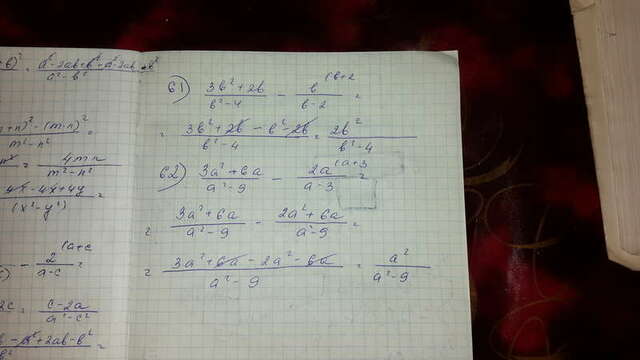 в)² = a²-2ab+b²+a²-2ab-b² / a²-b²
+n)²-(m-n)² / m²-n² =
= 4mn / m²-n²
-4x+4y / (x²-y²) =
- 2 / a-c (a+c =
2c = c-2a / a²-c²
+2ab-b² =
б1) 3b²+2b / b²-4 - b / b-2 (b+2 =
= 3b²+2b-b²-2b / b²-4 = 2b² / b²-4
б2) 3a²+6a / a²-9 - 2a / a-3 (a+3 =
= 3a²+6a / a²-9 - 2a²+6a / a²-9 =
= 3a²+6a-2a²-6a / a²-9 = a² / a²-9